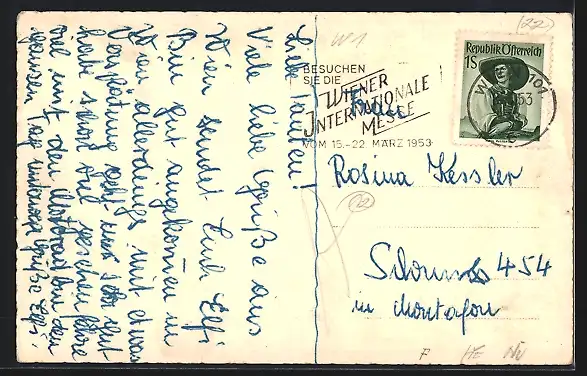 Liebe Tanten!
Viele liebe Grüße aus
Wien sendet Euch Elfi
Bin gut angekommen in
Wien allerdings mit etwas
Verspätung. Geht mir sehr gut
habe schon viel gesehen fahre
viel mit der
ganzen Tag Grüße Elfi
W 1
(22)
BESUCHEN
SIE DIE
WIENER
INTERNATIONALE
MESSE
VOM 15.-22. MÄRZ 1953
Republik Österreich
1S
WIEN 101
53
Frau
Rosina Kessler
Schruns 454
in Montafon
F